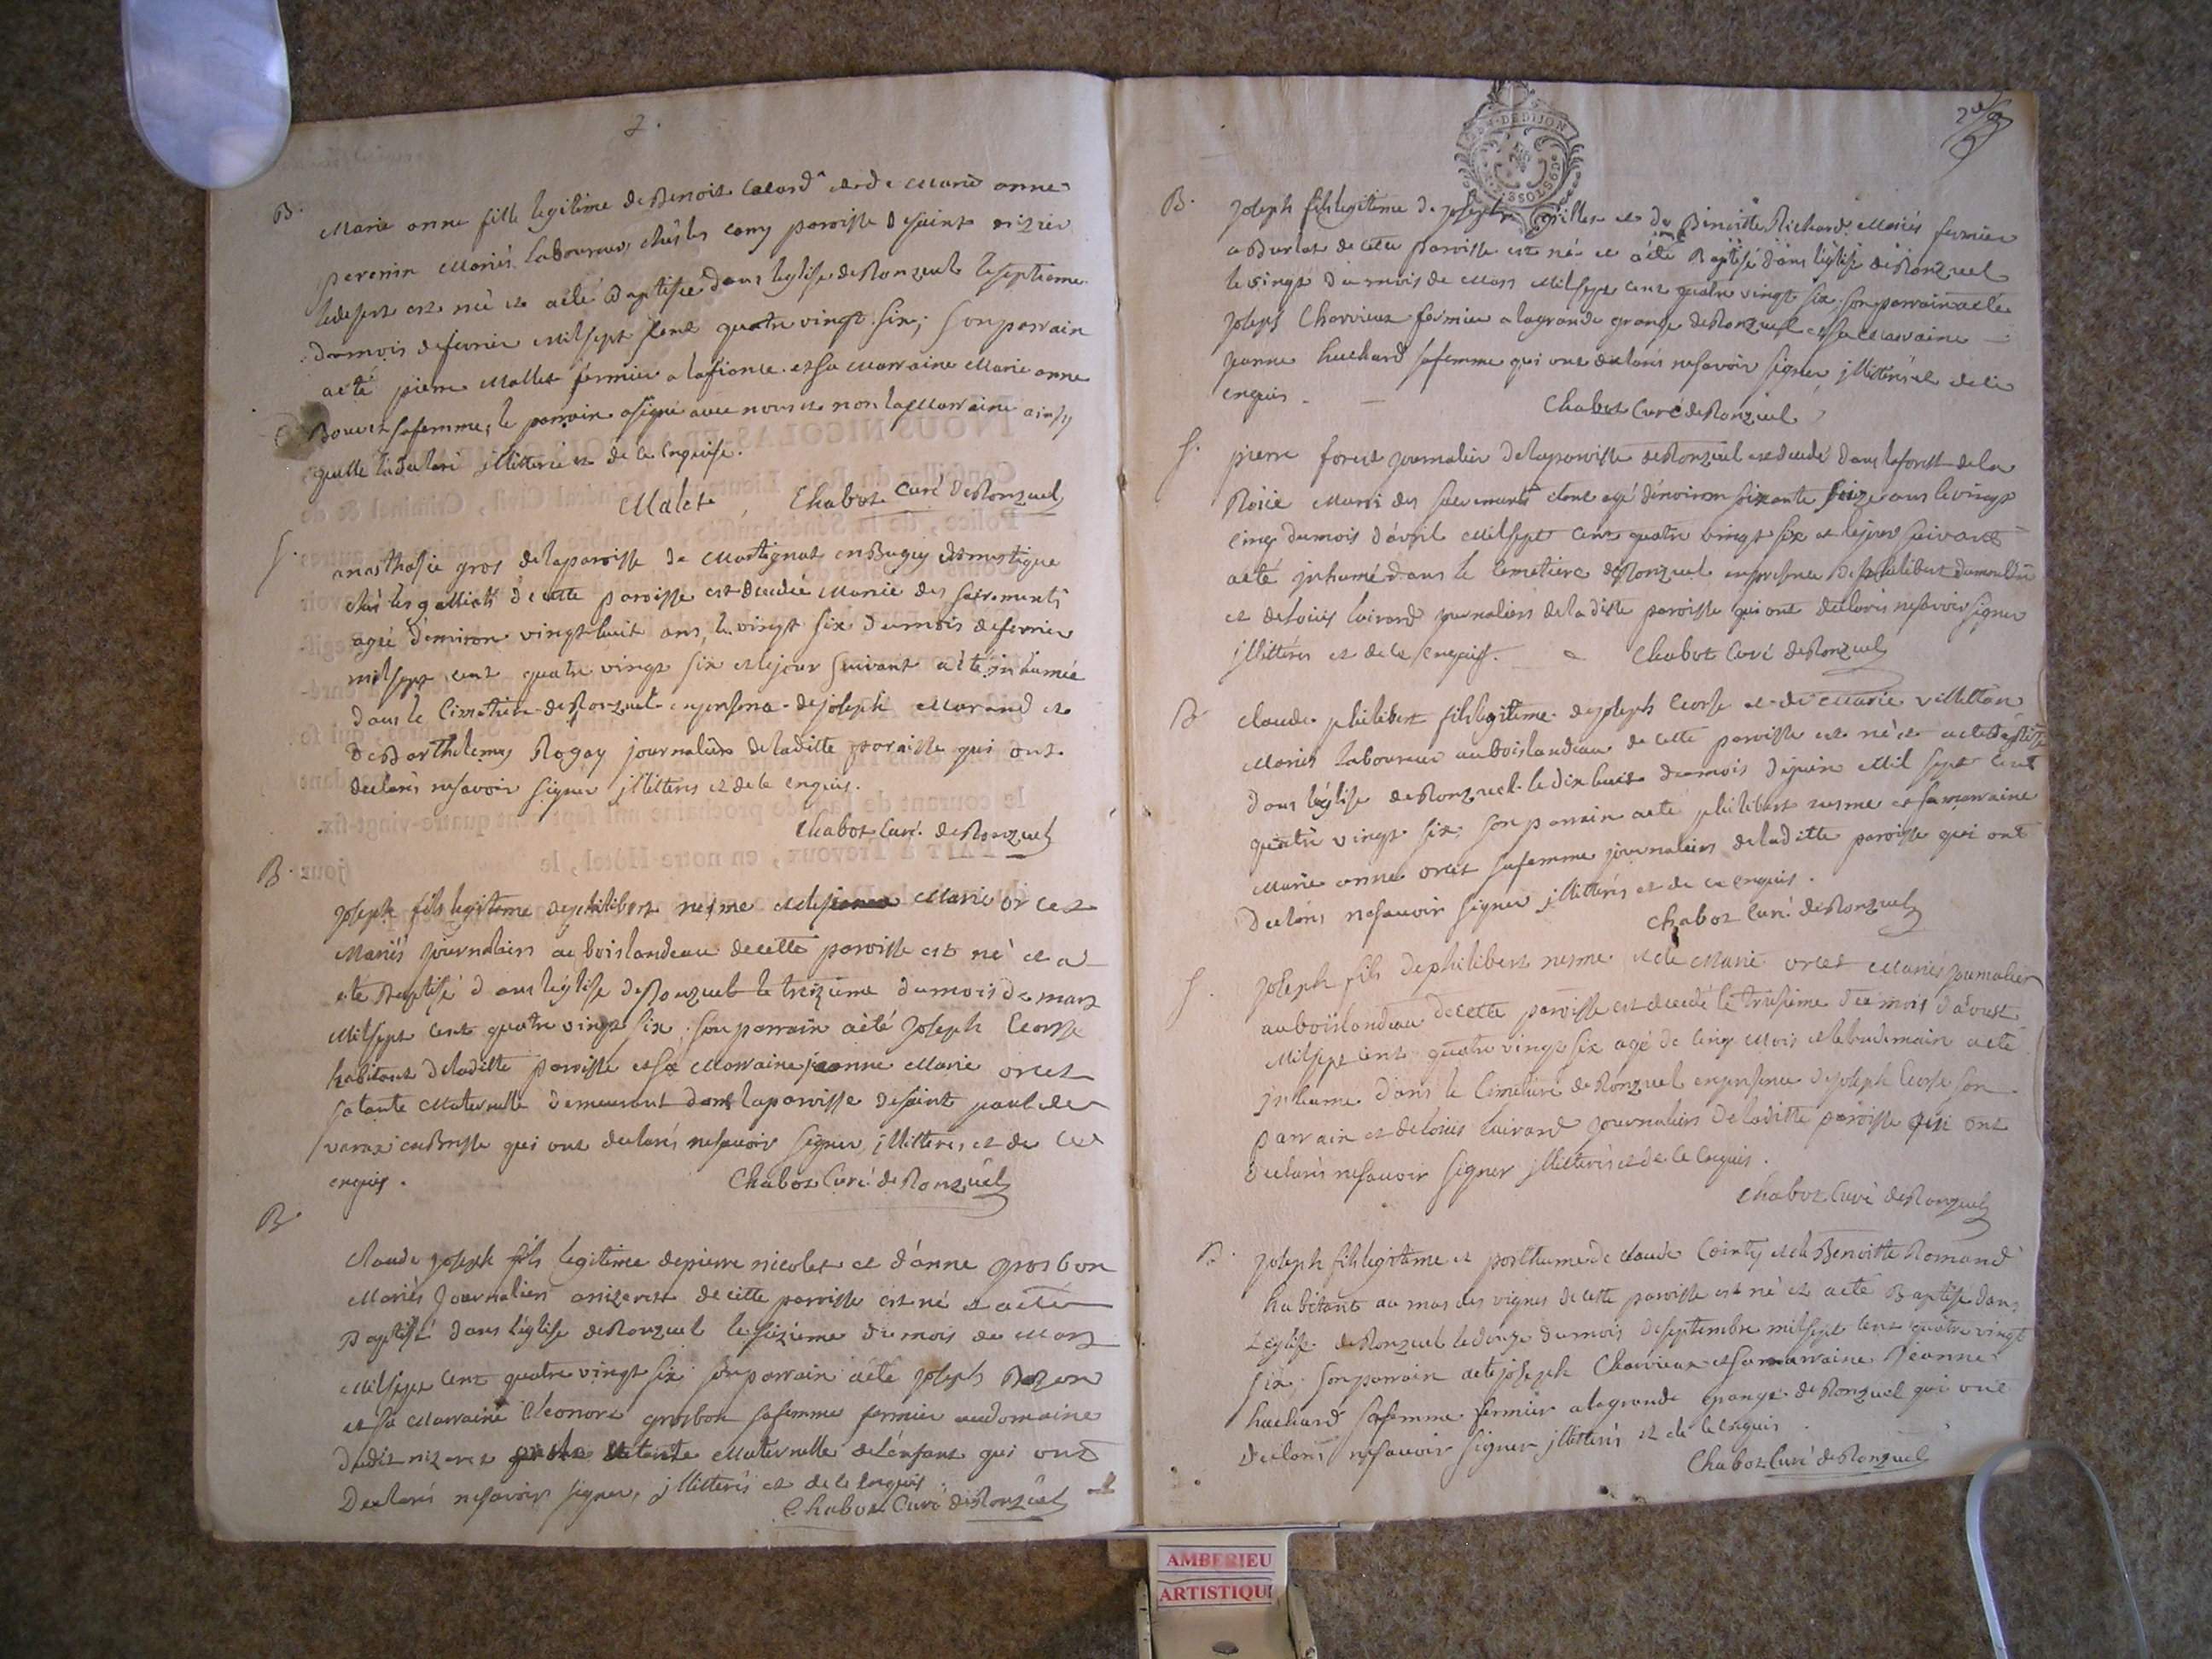 2.
B.
Marie anne fille legitime de Benoit Calard et de Marie anne
perenin Mariés Laboureurs chés les cony paroisse de saint nizier
ledesert est née et a eté Baptisée dans leglise de Ronzuel le septieme
du mois de fevrier Milsept cent quatre vingt six; son parrain
a eté pierre Mallet fermier a lafiance et sa Marraine Marie anne
Bouvet safemme, le parrain a signé avec nous et non la Marraine ainsy
quelle l'a declaré illitterée et de ce enquise.
Malet Chabot Curé de Ronzuel
S.
anasthasie gros de la paroisse de Martignat en Bugey domestique
chés les galliats de cette paroisse est decedée Munie des sacrements
agée d'environ vingt huit ans, le vingt six du mois de fevrier
milsept cent quatre vingt six et lejour suivant a eté inhumée
dans le Cimetiere de Ronzuel en presence de joseph Marand et
de Barthelemy Rogay journaliers de laditte paroisse qui ont
declarés nesavoir signer illitterés et de ce enquis.
Chabot Curé de Ronzuel
B.
joseph fils legitime de philibert nesme et de Marie orcet
Mariés journaliers au boislandeau de cette paroisse est né et a
eté Baptisé dans léglise de Ronzuel le treizieme du mois de mars
Milsept cent quatre vingt six; son parrain a eté joseph Ceorse
habitant de laditte paroisse et sa Marraine jeanne Marie orcet
sa tante Maternelle demeurant dans la paroisse de saint paul de
varax en Bresse qui ont declarés nesavoir signer, illitterés et de ce
enquis.
Chabot Curé de Ronzuel
B.
Claude joseph fils legitime de pierre nicolet et d'anne grosbon
Mariés journaliers a nizeret de cette paroisse est né et a eté
Baptisé dans léglise de Ronzuel le sizieme du mois de Mars
Milsept cent quatre vingt six son parrain a eté joseph Bozon
et sa Marraine Eleonore grosbon safemme fermier au domaine
dudit nizeret tante Maternelle de l'enfant qui ont
Declarés nesavoir signer, illitterés et de ce enquis.
Chabot Curé de Ronzuel
2e
DE DIJON
B.
joseph fils legitime de joseph grillet et de Benoitte Richard Mariés fermier
a Burlat de cette paroisse est né et a eté Baptisé dans l'église de Ronzuel
le vingt du mois de Mars Milsept cent quatre vingt six; son parrain a eté
joseph Charvieux fermier a la grande grange de Ronzuel et sa Marraine
jeanne huchard safemme qui ont declarés nesavoir signer illitterés et de ce
enquis.
Chabot Curé de Ronzuel
S.
pierre foret journalier de la paroisse de Ronzuel est decedé dans la forest de la
Roüe Muni des sacrements agé d'environ soixante seize ans le vingt
cinq du mois d'avril Milsept cent quatre vingt six et lejour suivant
a eté inhumé dans le Cemetiere de Ronzuel en presence de philibert dumoulin
et de Louis Loirard journaliers de la ditte paroisse qui ont declarés nesavoir signer
illitterés et de ce enquis. Chabot Curé de Ronzuel
B
Claude philibert fils legitime de joseph Ceorse et de Marie villettan
Mariés Laboureur au boislandeau de cette paroisse est né et a eté Baptisé
dans léglise de Ronzuel le dix huit du mois de juin Mil sept cent
quatre vingt six; son parrain a eté philibert nesme et sa marraine
Marie anne orcet safemme journaliers de laditte paroisse qui ont
declarés nesavoir signer illitterés et de ce enquis.
Chabot Curé de Ronzuel
S.
joseph fils de philibert nesme et de Marie orcet Mariés journalier
au boislandeau de cette paroisse est decedé le treisieme du mois d'aoust
Milsept cent quatre vingt six agé de cinq Mois et lelendemain a eté
inhumé dans le Cimetiere de Ronzuel en presence de joseph Ceorse son
parrain et de Louis Loirard journaliers de laditte paroisse qui ont
declarés nesavoir signer illitterés et de ce enquis.
Chabot Curé de Ronzuel
B.
joseph fils legitime et posthume de claude Cointy et de Benoitte Romand
habitant au mas des vignes de cette paroisse est né et a eté Baptisé dans
L'eglise de Ronzuel le douze du mois de septembre milsept cent quatre vingt
six; son parrain a eté joseph Charvieux et sa marraine jeanne
huchard safemme fermier a la grande grange de Ronzuel qui ont
declarés nesavoir signer illitterés et de ce enquis
Chabot Curé de Ronzuel
AMBERIEU
ARTISTIQU